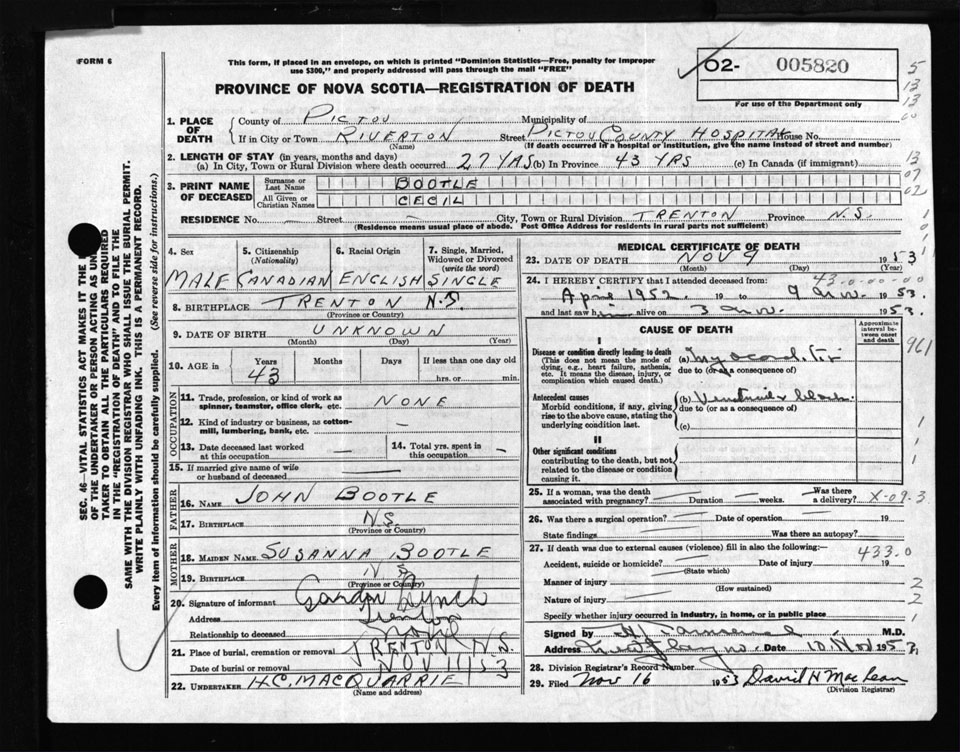 FORM 6
This form, if placed in an envelope, on which is printed "Dominion Statistics—Free, penalty for improper
use $300," and properly addressed will pass through the mail "FREE"
O2- 005820
For use of the Department only
PROVINCE OF NOVA SCOTIA—REGISTRATION OF DEATH
5
13
13
60
13
07
02
1
0
0
1
961
1
1
1
2
2
1
SEC. 46—VITAL STATISTICS ACT MAKES IT THE
OF THE UNDERTAKER OR PERSON ACTING AS UN
TAKER TO OBTAIN ALL THE PARTICULARS REQUIRED
IN THE "REGISTRATION OF DEATH" AND TO FILE THE
SAME WITH THE DIVISION REGISTRAR WHO SHALL ISSUE THE BURIAL PERMIT.
WRITE PLAINLY WITH UNFADING INK. THIS IS A PERMANENT RECORD.
Every item of information should be carefully supplied. (See reverse side for instructions.)
1. PLACE OF DEATH
County of PICTOU Municipality of
If in City or Town RIVERTON Street PICTOU COUNTY HOSPITAL House No.
(Name) (If death occurred in a hospital or institution, give the name instead of street and number)
2. LENGTH OF STAY (in years, months and days)
(a) In City, Town or Rural Division where death occurred 27 YRS (b) In Province 43 YRS (c) In Canada (if immigrant)
3. PRINT NAME OF DECEASED
Surname or Last Name BOOTLE
All Given or Christian Names CECIL
RESIDENCE No. — Street — City, Town or Rural Division TRENTON Province N.S.
(Residence means usual place of abode. Post Office Address for residents in rural parts not sufficient)
4. Sex 5. Citizenship (Nationality) 6. Racial Origin 7. Single, Married, Widowed or Divorced (write the word)
MALE CANADIAN ENGLISH SINGLE
8. BIRTHPLACE TRENTON N.S.
(Province or Country)
9. DATE OF BIRTH UNKNOWN
(Month) (Day) (Year)
10. AGE in Years Months Days If less than one day old
43 hrs. or min.
OCCUPATION
11. Trade, profession, or kind of work as spinner, teamster, office clerk, etc. NONE
12. Kind of industry or business, as cotton-mill, lumbering, bank, etc. —
13. Date deceased last worked at this occupation —
14. Total yrs. spent in this occupation —
15. If married give name of wife or husband of deceased
FATHER
16. NAME JOHN BOOTLE
17. BIRTHPLACE N.S.
(Province or Country)
MOTHER
18. MAIDEN NAME SUSANNA BOOTLE
19. BIRTHPLACE N.S.
(Province or Country)
20. Signature of informant Gordon Lynch
Address Trenton
Relationship to deceased None
21. Place of burial, cremation or removal TRENTON N.S.
Date of burial or removal NOV 11 153
22. UNDERTAKER H.C. MACQUARRIE
(Name and address)
MEDICAL CERTIFICATE OF DEATH
23. DATE OF DEATH NOV 9 1953
(Month) (Day) (Year)
24. I HEREBY CERTIFY that I attended deceased from: 43-0-00-00
April 1952 19 to 9 Nov. 1953.
and last saw him alive on 3 Nov. 1953.
CAUSE OF DEATH
Approximate interval between onset and death
I
Disease or condition directly leading to death
(This does not mean the mode of dying, e.g., heart failure, asthenia, etc. It means the disease, injury, or complication which caused death.)
(a) Myocarditis
due to (or as a consequence of)
Antecedent causes
Morbid conditions, if any, giving rise to the above cause, stating the underlying condition last.
(b)
due to (or as a consequence of)
(c)
II
Other significant conditions
contributing to the death, but not related to the disease or condition causing it.
25. If a woman, was the death associated with pregnancy? — Duration — weeks. Was there a delivery? — X-09-3
26. Was there a surgical operation? — Date of operation — 19
State findings Was there an autopsy?
27. If death was due to external causes (violence) fill in also the following:— 433.0
Accident, suicide or homicide? Date of injury 19
(State which)
Manner of injury
(How sustained)
Nature of injury
Specify whether injury occurred in industry, in home, or in public place
Signed by M.D.
Address Date 10 Nov 1953
28. Division Registrar's Record Number
29. Filed Nov 16 1953 David H MacLean
(Division Registrar)